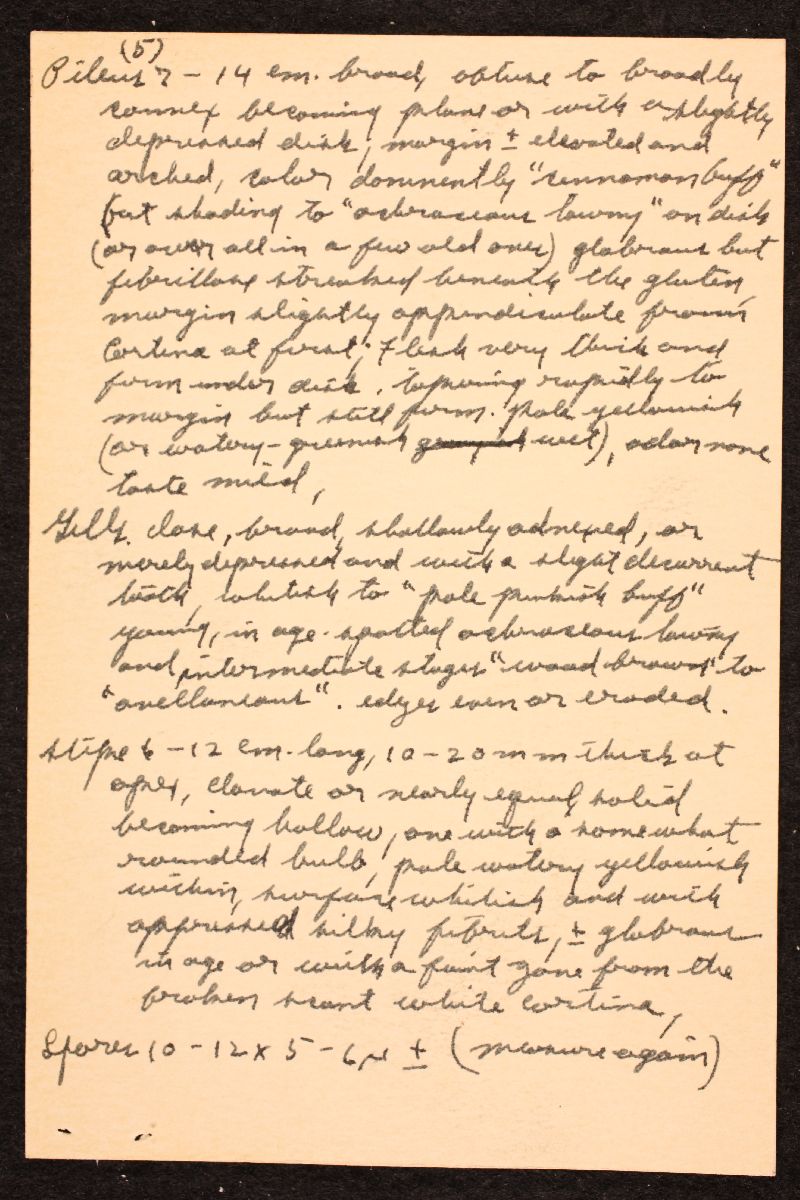 (5)
Pileus 7 - 14 cm. broad, obtuse to broadly
convex becoming plane or with a slightly
depressed disk, margin ± elevated and
arched, color dominently "cinnamon buff"
but shading to "ochraceous tawny" on disk
(or over all in a few old ones) glabrous but
fibrillose streaked beneath the gluten,
margin slightly appendiculate from
Cortina at first; Flesh very thick and
firm under disk, tapering rapidly to
margin but still firm. pale yellowish
(or watery-greenish wet), odor none
taste mild,
Gills close, broad, shallowly adnexed, or
merely depressed and with a slight decurrent
tooth, whitish to "pale pinkish buff"
young, in age spotted ochraceous tawny
and intermediate stages "wood brown" to
"avellaneous". edges even or eroded.
stipe 6 - 12 cm. long, 10 - 20 mm thick at
apex, clavate or nearly equal, solid
becoming hollow, one with a somewhat
rounded bulb, pale watery yellowish
within, surface whitish and with
appressed silky fibrils, ± glabrous
in age or with a faint zone from the
broken scant white cortina,
Spores 10 - 12 x 5 - 6 µ ± (measure again)